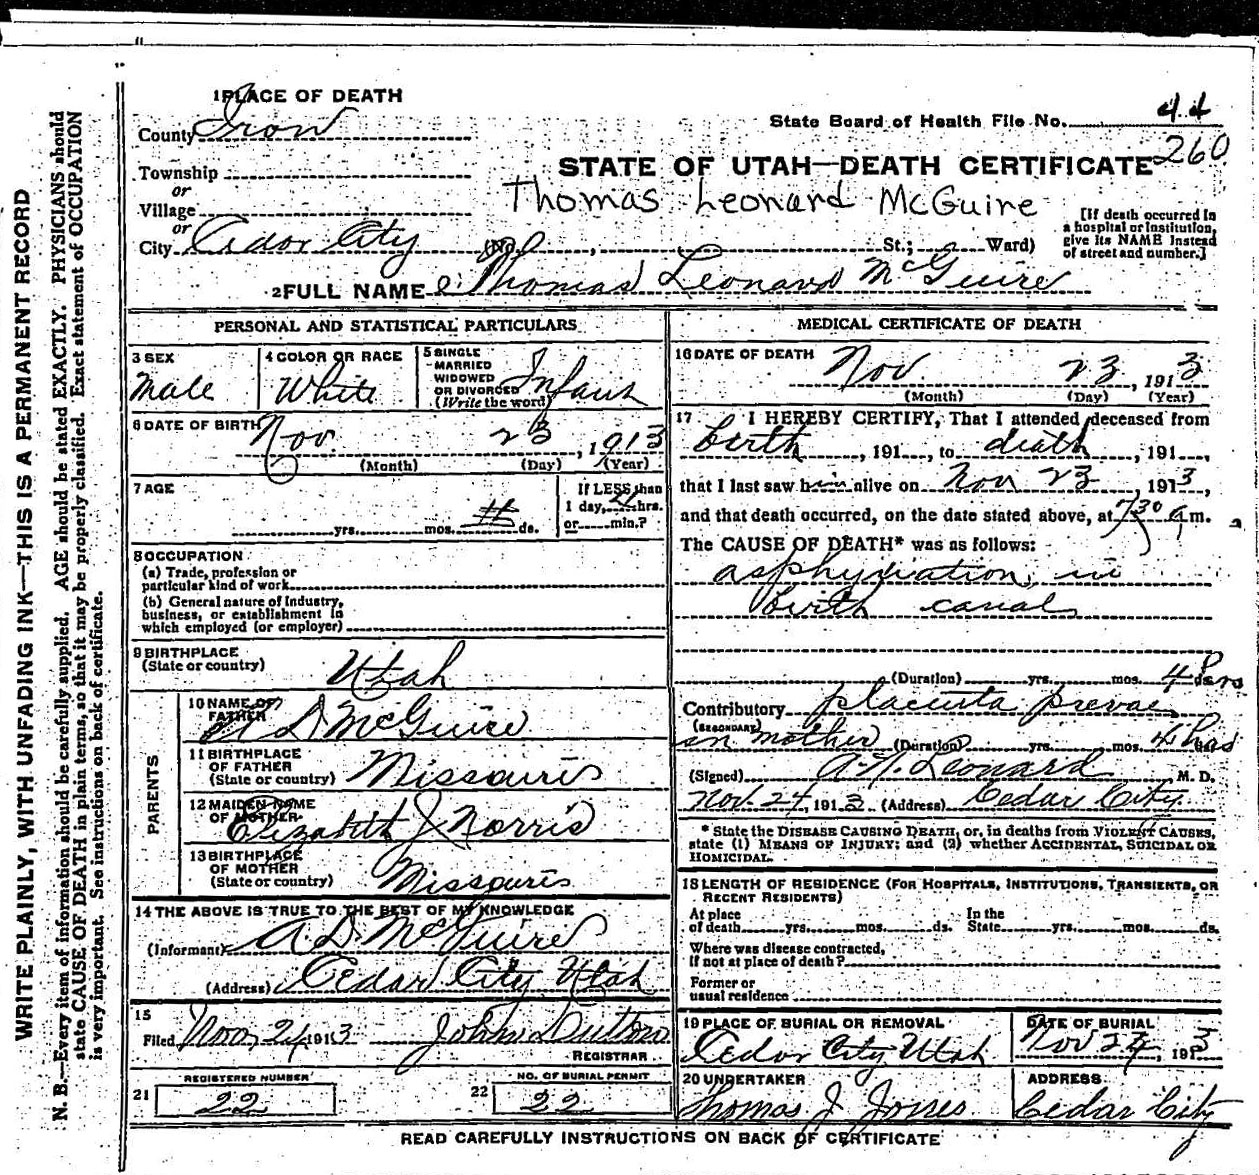 1 PLACE OF DEATH
County Iron
State Board of Health File No. 44
260
Township
or
Village
or
City Cedar City (No. , St.; Ward)
STATE OF UTAH—DEATH CERTIFICATE
Thomas Leonard McGuire
[If death occurred in
a hospital or institution,
give its NAME instead
of street and number.]
2 FULL NAME Thomas Leonard McGuire
PERSONAL AND STATISTICAL PARTICULARS
3 SEX
Male
4 COLOR OR RACE
White
5 SINGLE
MARRIED
WIDOWED
OR DIVORCED
(Write the word)
Infant
6 DATE OF BIRTH
Nov 23, 1913
(Month) (Day) (Year)
7 AGE
yrs. mos. ds.
If LESS than
1 day, 4 hrs.
or min.?
8 OCCUPATION
(a) Trade, profession or
particular kind of work
(b) General nature of Industry,
business, or establishment in
which employed (or employer)
9 BIRTHPLACE
(State or country) Utah
PARENTS
10 NAME OF
FATHER
A D McGuire
11 BIRTHPLACE
OF FATHER
(State or country) Missouri
12 MAIDEN NAME
OF MOTHER
Elizabeth J Norris
13 BIRTHPLACE
OF MOTHER
(State or country) Missouri
14 THE ABOVE IS TRUE TO THE BEST OF MY KNOWLEDGE
(Informant) A. D. McGuire
(Address) Cedar City Utah
15
Filed Nov, 24 1913 John Dutton
REGISTRAR
REGISTERED NUMBER
21 22
NO. OF BURIAL PERMIT
22 22
MEDICAL CERTIFICATE OF DEATH
16 DATE OF DEATH
Nov 23, 1913
(Month) (Day) (Year)
17 I HEREBY CERTIFY, That I attended deceased from
birth, 191, to death, 191,
that I last saw him alive on Nov 23, 1913,
and that death occurred, on the date stated above, at 730 a m.
The CAUSE OF DEATH* was as follows:
asphyxiation, in
birth canal
(Duration) yrs. mos. 4 hrs
Contributory placenta prevae
(SECONDARY)
on mother (Duration) yrs. mos. 4 hrs
(Signed) A. N. Leonard, M. D.
Nov. 24, 1913 (Address) Cedar City
* State the DISEASE CAUSING DEATH, or, in deaths from VIOLENT CAUSES,
state (1) MEANS OF INJURY; and (2) whether ACCIDENTAL, SUICIDAL OR
HOMICIDAL.
18 LENGTH OF RESIDENCE (FOR HOSPITALS, INSTITUTIONS, TRANSIENTS, OR
RECENT RESIDENTS)
At place In the
of death yrs. mos. ds. State yrs. mos. ds.
Where was disease contracted,
if not at place of death?
Former or
usual residence
19 PLACE OF BURIAL OR REMOVAL
Cedar City Utah
DATE OF BURIAL
Nov 24, 1913
20 UNDERTAKER
Thomas J. Jones
ADDRESS
Cedar City
READ CAREFULLY INSTRUCTIONS ON BACK OF CERTIFICATE
WRITE PLAINLY, WITH UNFADING INK—THIS IS A PERMANENT RECORD
N. B.—Every item of information should be carefully supplied. AGE should be stated EXACTLY. PHYSICIANS should
state CAUSE OF DEATH in plain terms, so that it may be properly classified. Exact statement of OCCUPATION
is very important. See instructions on back of certificate.